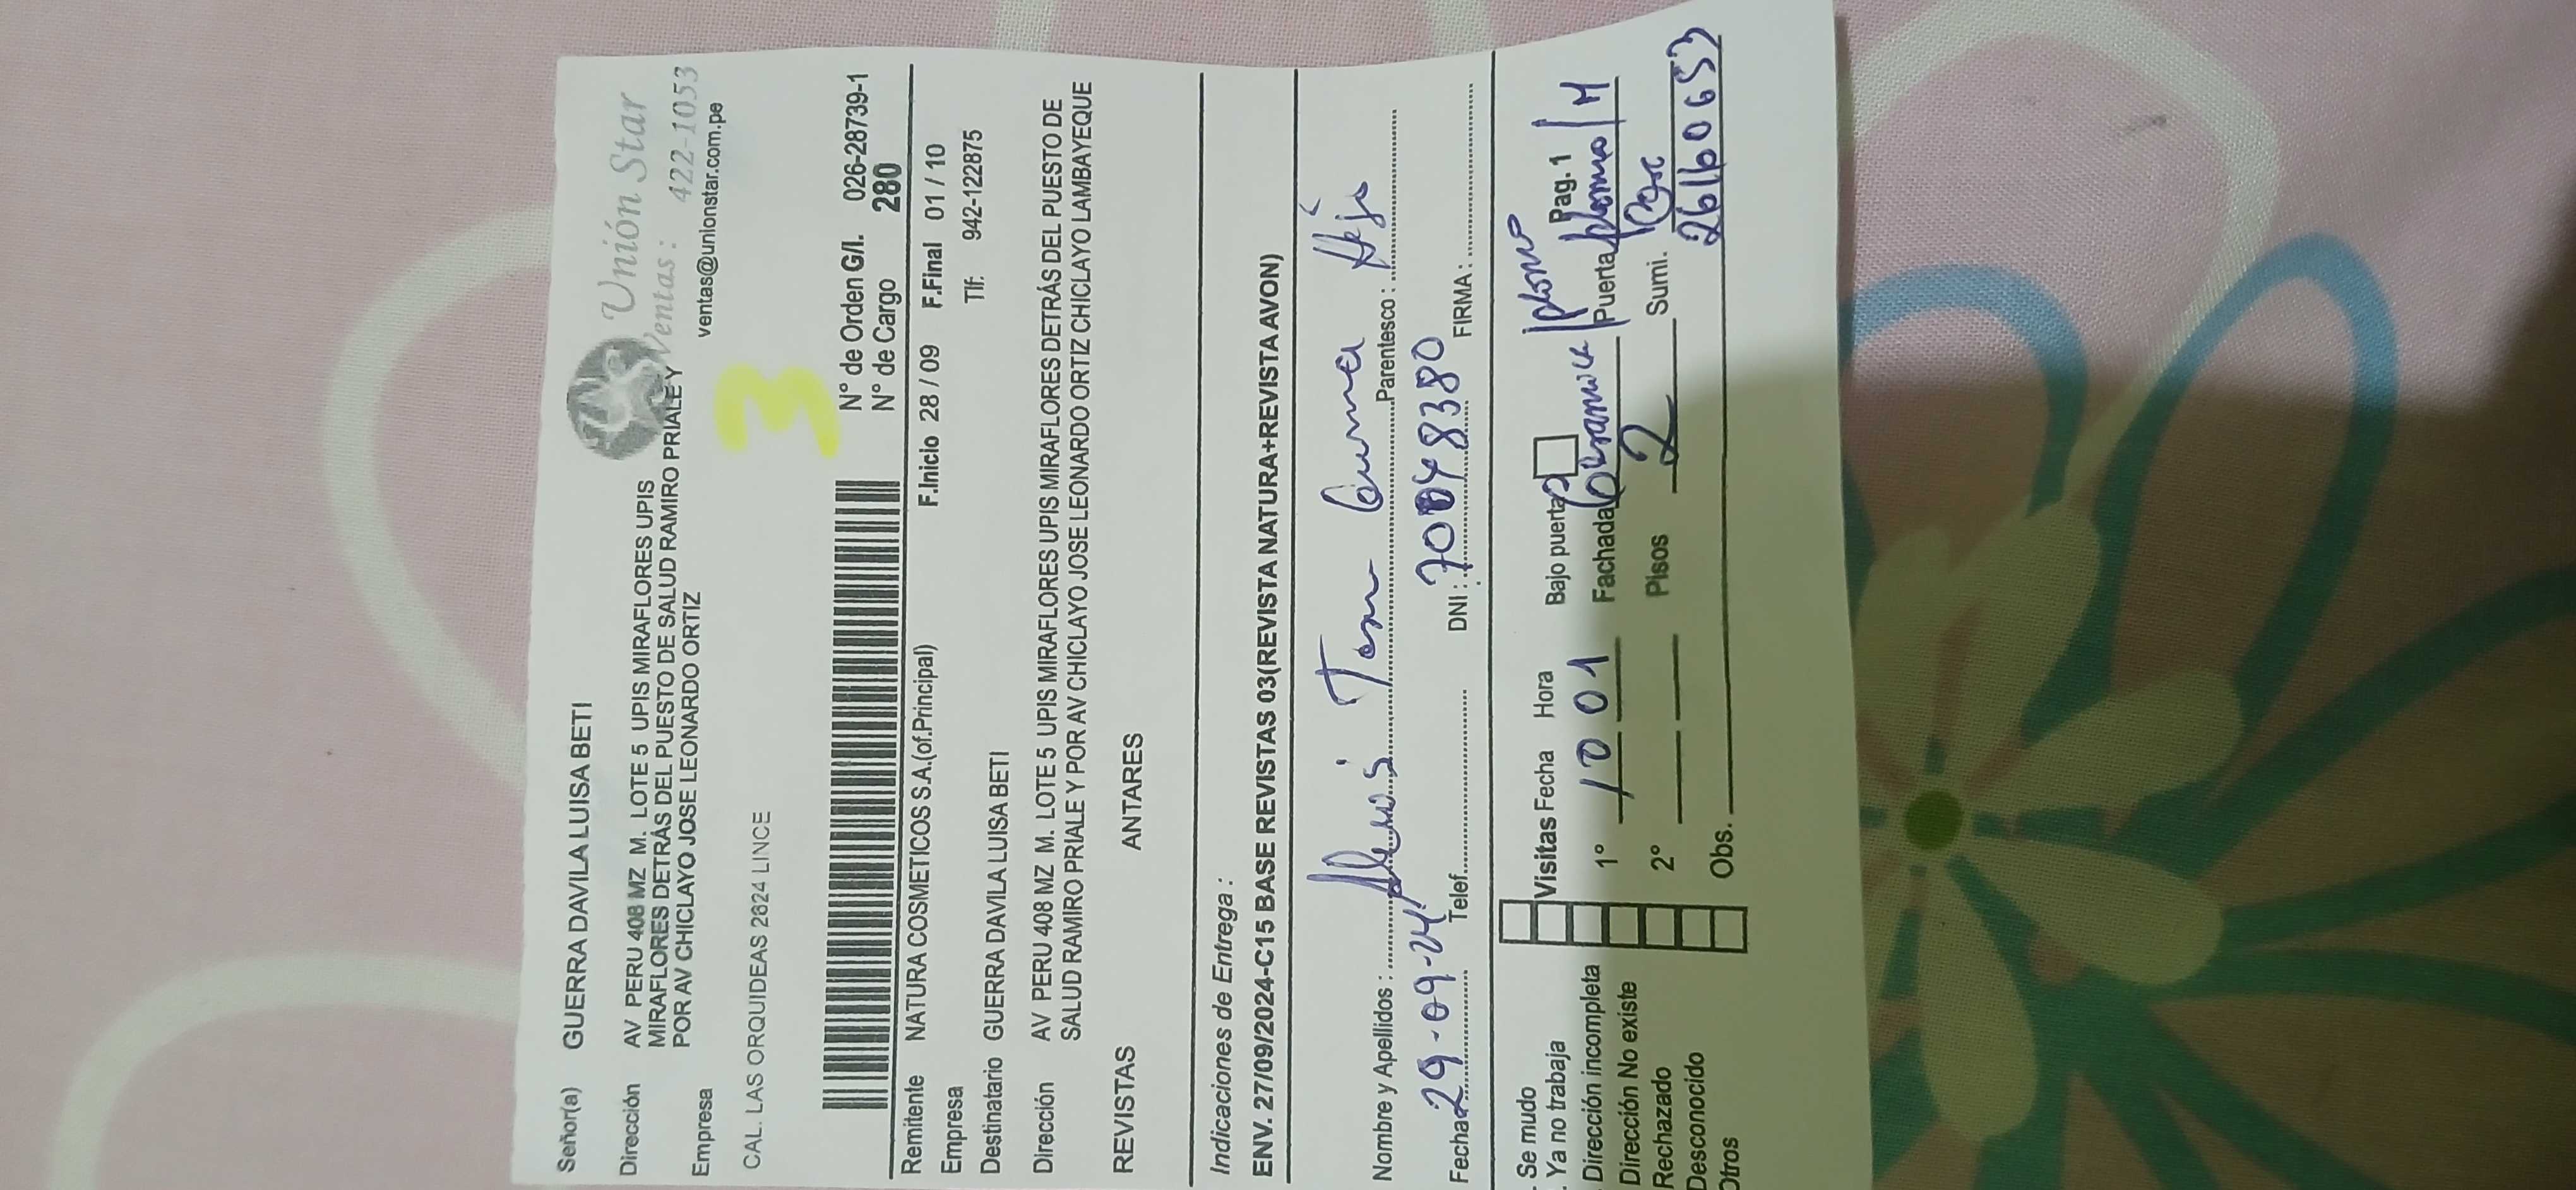 Unión Star
Ventas: 422-1053
ventas@unionstar.com.pe
Señor(a) GUERRA DAVILA LUISA BETI
Dirección AV PERU 408 MZ M. LOTE 5 UPIS MIRAFLORES UPIS
MIRAFLORES DETRÁS DEL PUESTO DE SALUD RAMIRO PRIALE Y
POR AV CHICLAYO JOSE LEONARDO ORTIZ
Empresa
3
CAL. LAS ORQUIDEAS 2624 LINCE
N° de Orden G/I. 026-28739-1
N° de Cargo 280
Remitente NATURA COSMETICOS S.A.(of.Principal) F.Inicio 28 / 09 F.Final 01 / 10
Empresa Tlf: 942-122875
Destinatario GUERRA DAVILA LUISA BETI
Dirección AV PERU 408 MZ M. LOTE 5 UPIS MIRAFLORES UPIS MIRAFLORES DETRÁS DEL PUESTO DE
SALUD RAMIRO PRIALE Y POR AV CHICLAYO JOSE LEONARDO ORTIZ CHICLAYO LAMBAYEQUE
REVISTAS ANTARES
Indicaciones de Entrega :
ENV. 27/09/2024-C15 BASE REVISTAS 03(REVISTA NATURA+REVISTA AVON)
Nombre y Apellidos : Parentesco :
Fecha 29-09-24 Telef. DNI : 70048380 FIRMA :
Se mudo
Ya no trabaja Visitas Fecha Hora Bajo puerta plomo Pag. 1
Dirección incompleta 1° 10 01 Fachada Puerta plomo / M
Dirección No existe 2° Pisos 2 Sumi.
Rechazado
Desconocido Obs. 26160653
Otros